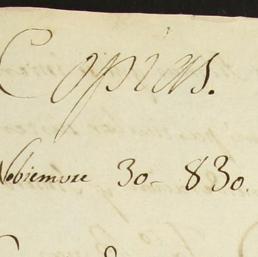 Copias.
Nobiemvre 30- 830.